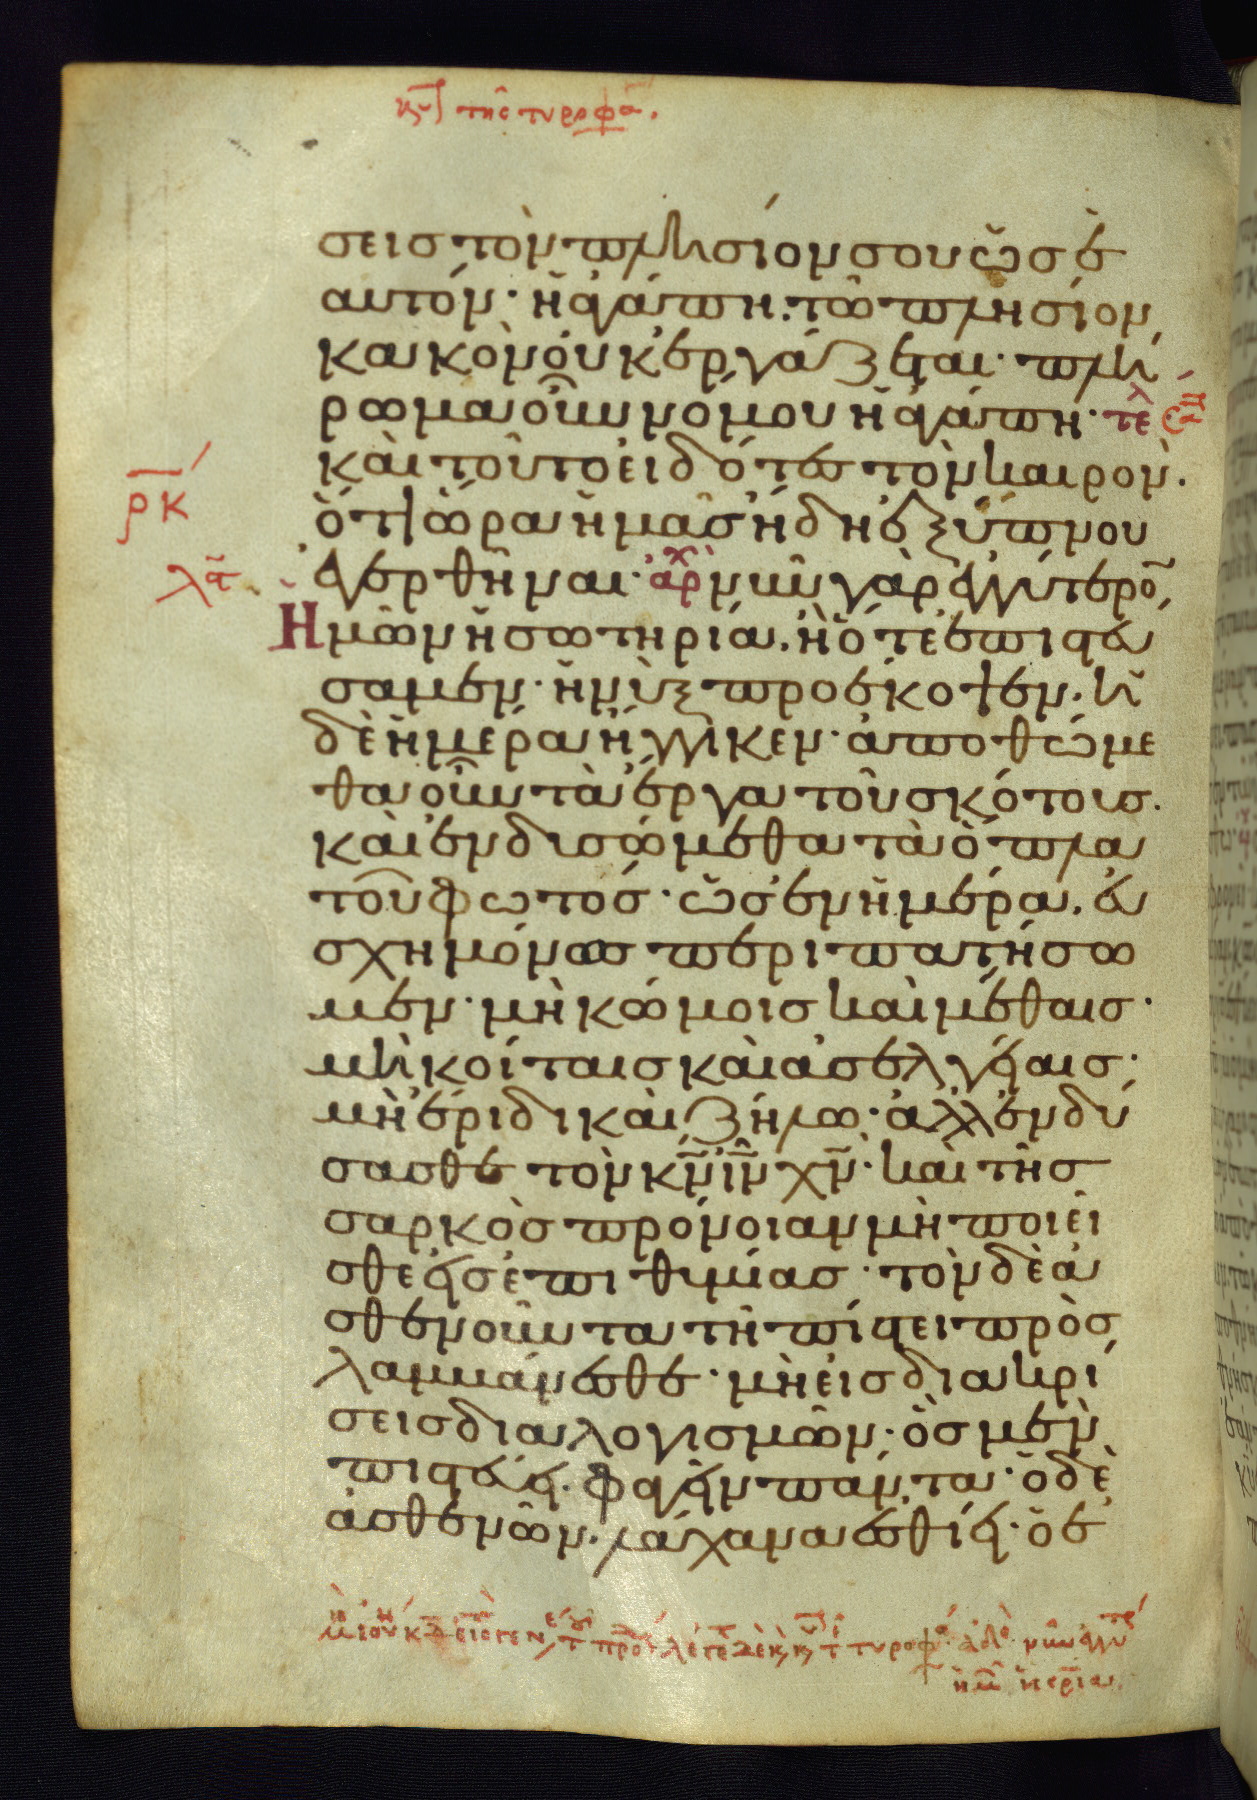 κυ τῆς τυροφά.
σεις τὸν πλησίον σου ὡς ἑ
αυτόν· ἡ ἀγάπη τῶ πλησίον
κακὸν οὐκ ἐργάζεται· πλή
ρωμα οὖν νόμου ἡ ἀγάπη· τε
καὶ τοῦτο εἰδότες τὸν καιρὸν.
ρκ
ὅτι ὥρα ἡμᾶς ἤδη ἐξ ὕπνου
ἐγερθῆναι· ἀρχ νῦν γὰρ ἐγγύτερο̄
Ἡμῶν ἡ σωτηρία, ἢ ὅτε ἐπιστεύ
σαμεν· ἡ νὺξ προέκοψεν. ἡ
δὲ ἡμέρα ἤγγικεν· ἀποθώμε
θα οὖν τὰ ἔργα τοῦ σκότους.
καὶ ἐνδυσώμεθα τὰ ὅπλα
τοῦ φωτός· ὡς ἐν ἡμέρα. εὐ
σχημόνως περιπατήσω
μεν· μὴ κώμοις καὶ μέθαις·
μὴ κοίταις καὶ ἀσελγείαις·
μὴ ἔριδι καὶ ζήλω· ἀλλ' ἐνδύ
σασθε τὸν κ̄ν ῑν χ̄ν· καὶ τῆς
σαρκὸς πρόνοιαν μὴ ποιεῖ
σθε εἰς ἐπιθυμίας· τὸν δὲ ἀ
σθενοῦντα τῆ πίστει προσ
λαμβάνεσθε· μὴ εἰς διακρί
σεις διαλογισμῶν· ὃς μὲν
πιστεύει φαγεῖν πάντα· ὁ δὲ
ἀσθενῶν. λάχανα ἐσθίει· ὁ ἐ